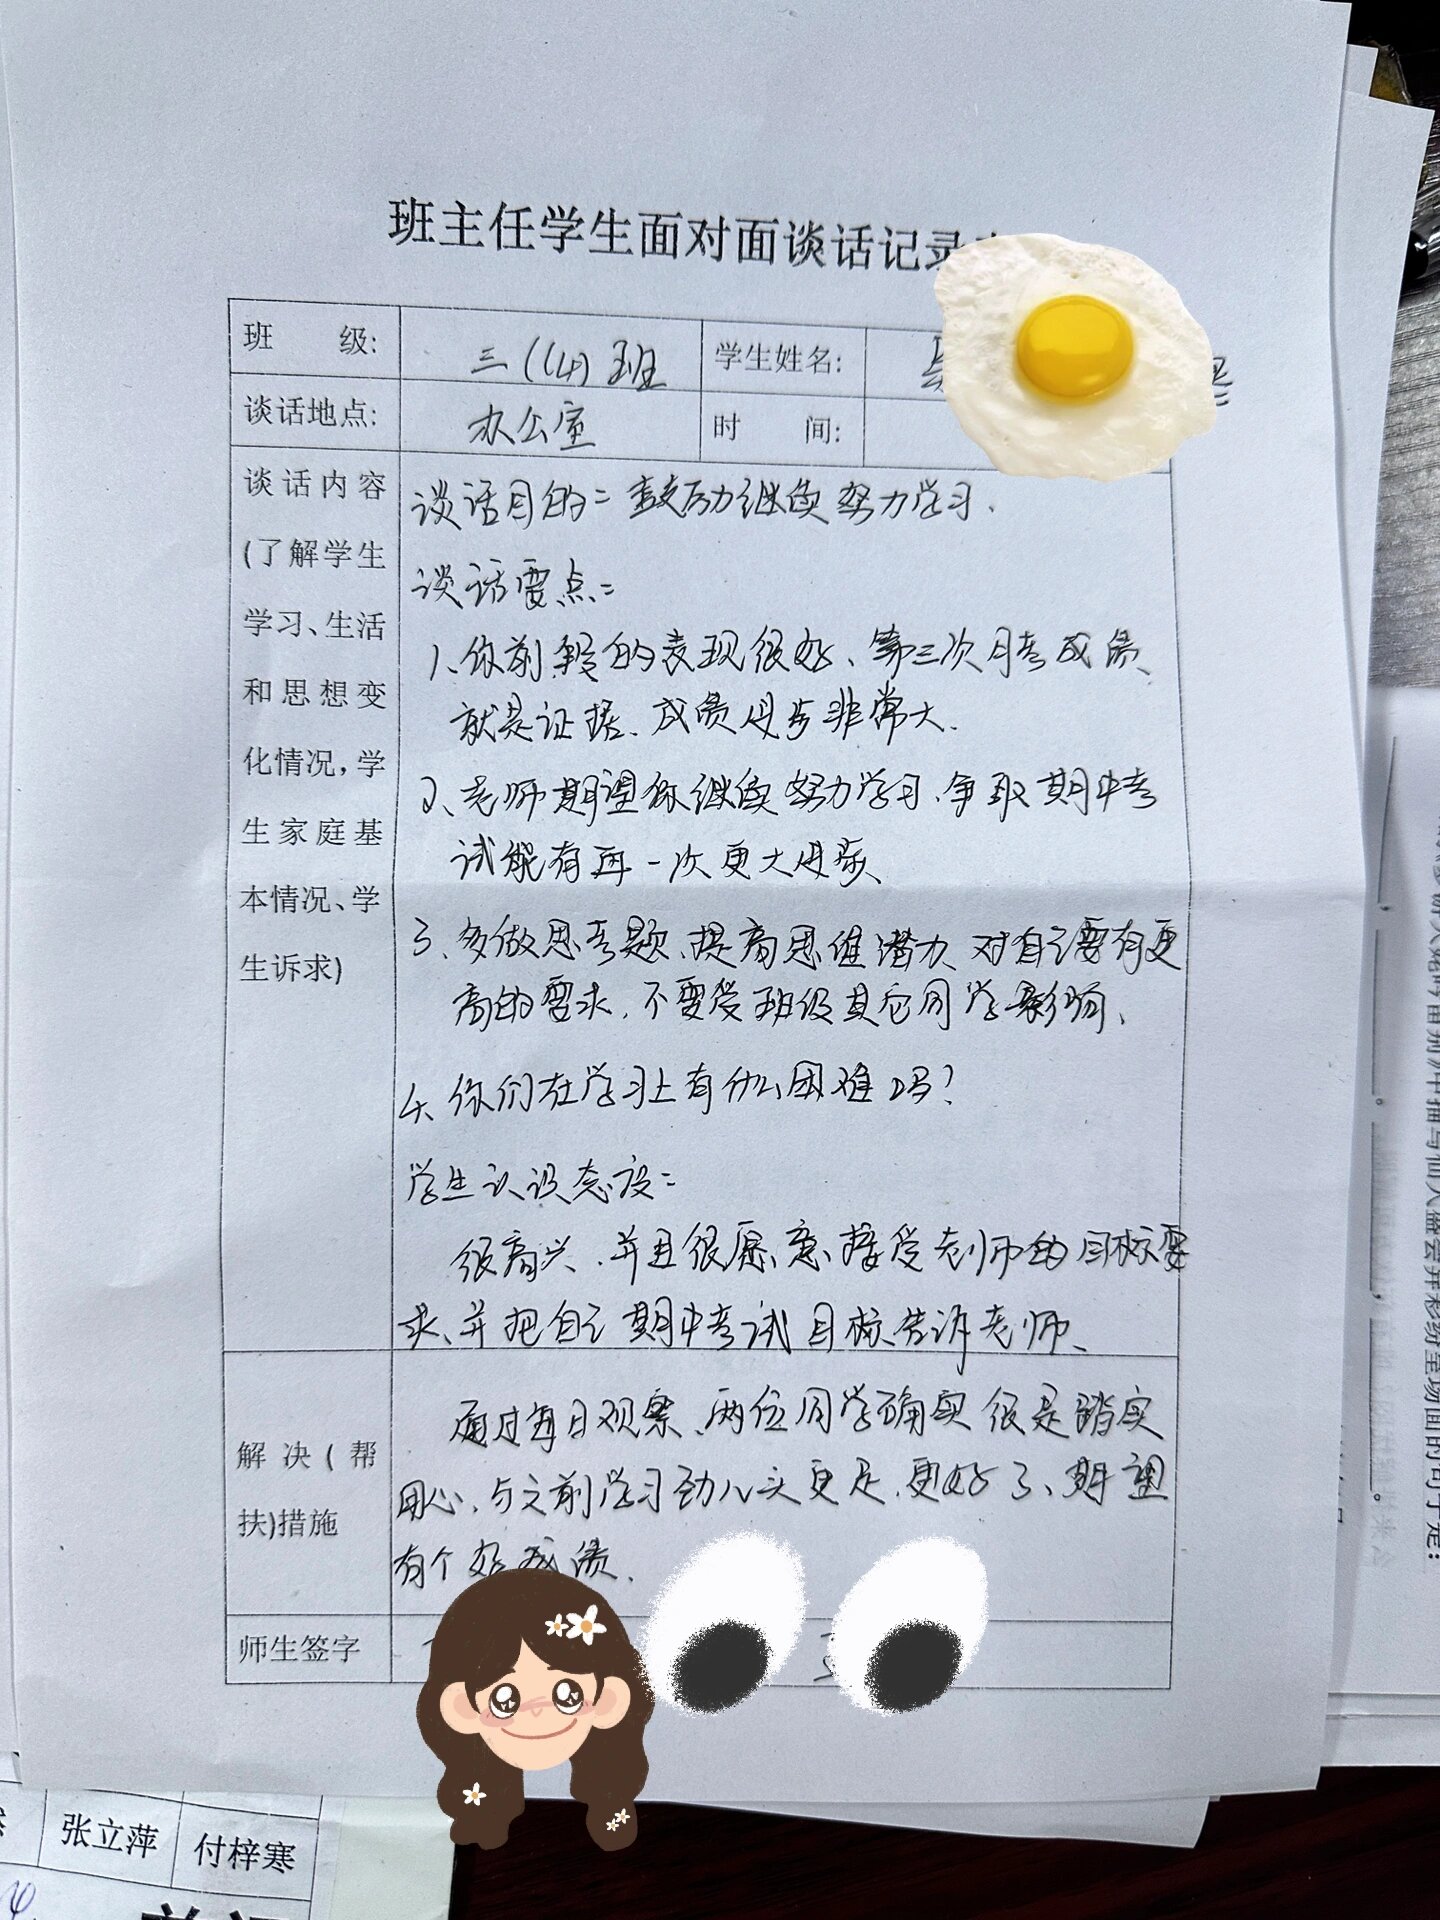 班主任学生面对面谈话记录
班 级:
三(14)班
学生姓名:
谈话地点:
办公室
时 间:
谈话内容
(了解学生
学习、生活
和思想变
化情况,学
生家庭基
本情况、学
生诉求)
谈话目的：鼓励继续努力学习.
谈话要点：
1、你前段的表现很好、第三次月考成绩、
就是证据、成绩进步非常大.
2、老师期望你继续努力学习、争取期中考
试能有再一次更大进步、
3、多做思考题、提高思维潜力 对自己要有更
高的要求、不要受班级其它同学影响、
4、你们在学习上有什么困难吗?
学生认识态度：
很高兴、并且很愿意接受老师的目标要
求、并把自己期中考试目标告诉老师、
解决(帮
扶)措施
通过每日观察、两位同学确实很是踏实
用心、与之前学习劲儿头更足、更好了、期望
有个好成绩.
师生签字
张立萍
付梓寒